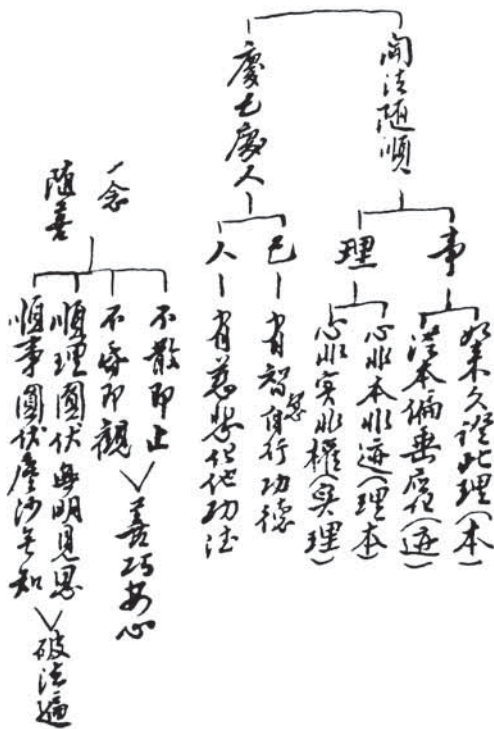 聞法随順
事
如来久證此理(本)
從本偏垂应化(迹)
理
心非本非迹(理本)
心非实非權(实理)
慶己慶人
己
有智慧自行功德
人
有慈悲化他功法
一念
随喜
不散即止
不昏即觀
善巧安心
順理圓伏無明見思
順事圓伏塵沙无知
破法遍